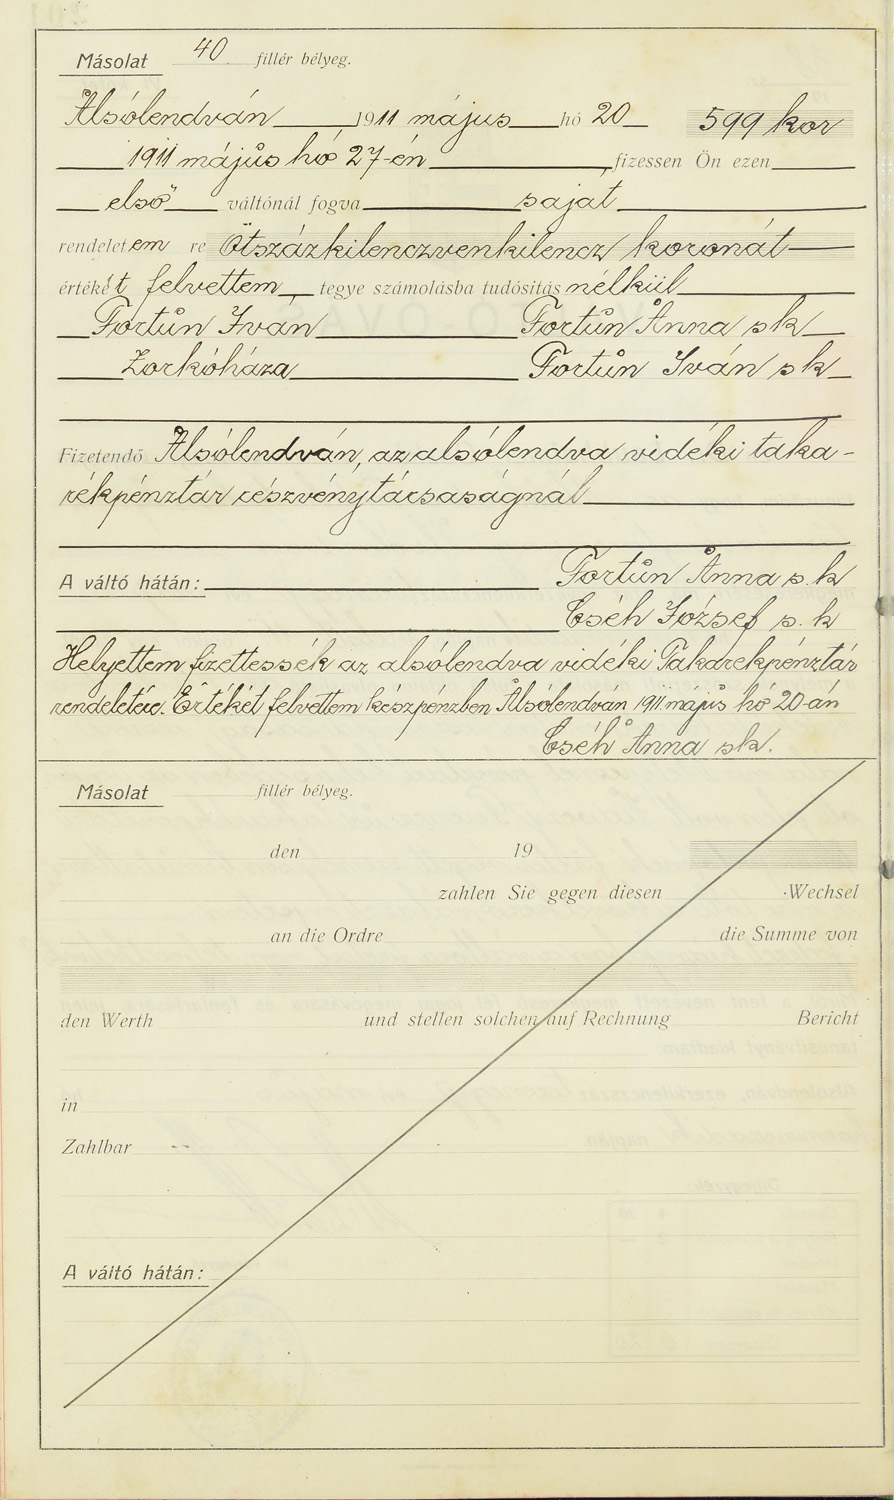 Másolat 40 fillér bélyeg.
Alsólendván 1911 május hó 20 599 kor
1911 május hó 27-én fizessen Ön ezen
első váltónál fogva saját
rendeletem re Ötszázkilenczvenkilencz koronát
értékét felvettem tegye számolásba tudósitás nélkül
Fortún Iván Fortún Anna sk
Zorkóháza Fortún Iván sk
Fizetendő Alsólendván, az alsólendva vidéki taka-
rékpénztár részvénytársaságnál
A váltó hátán: Fortún Anna s. k
Cséh József s. k
Helyettem fizettessék az alsólendva vidéki Takarékpénztár
Értékét felvettem készpénzben Alsólendván 1911 május hó 20-án
Cséh Anna sk.
Másolat fillér bélyeg.
den 19
zahlen Sie gegen diesen Wechsel
an die Ordre die Summe von
den Werth und stellen solchen auf Rechnung Bericht
in
Zahlbar
A váltó hátán: